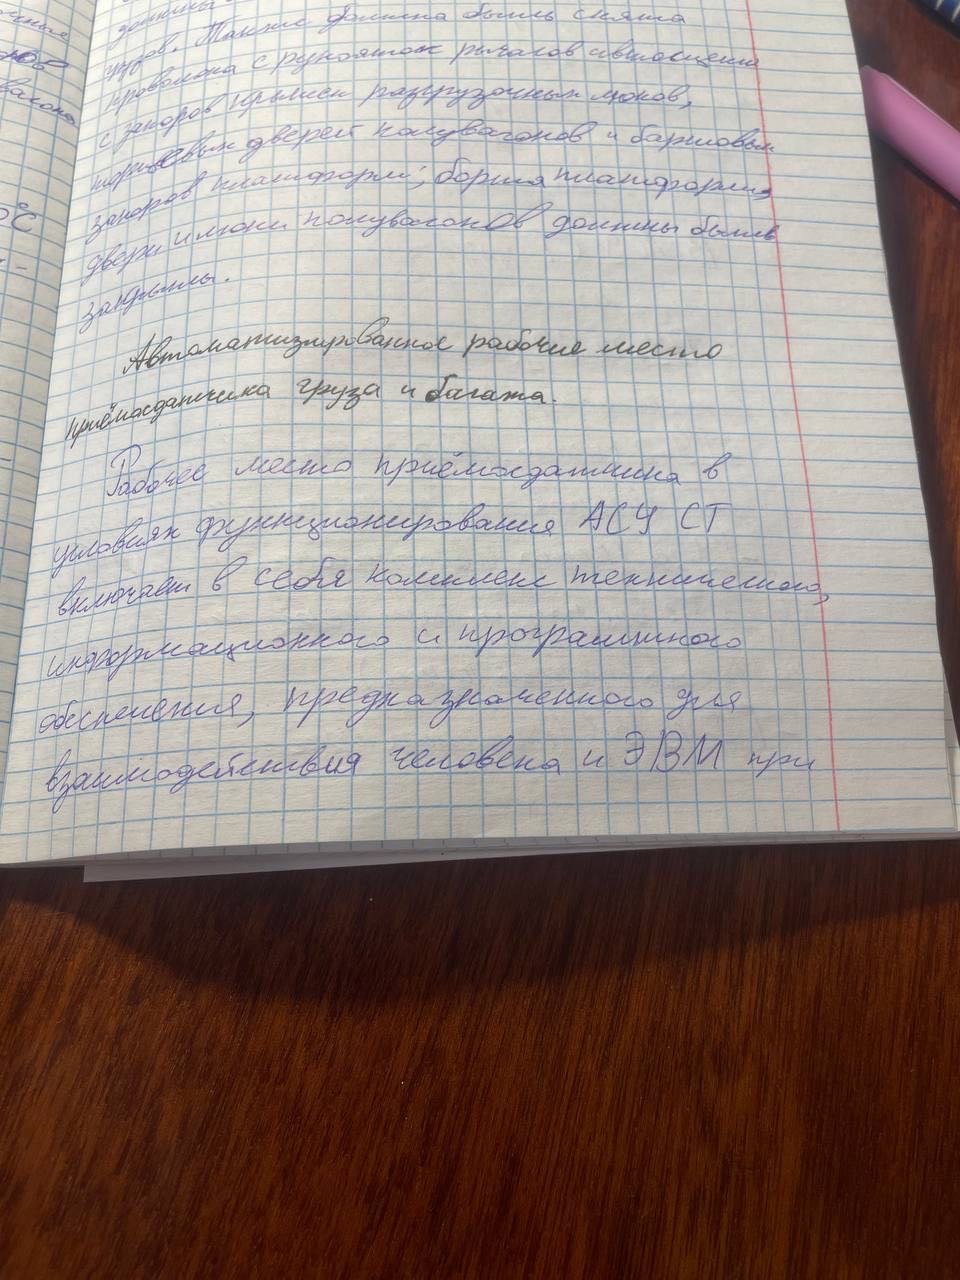 должны
узлов. Также должна быть снята
проволока с рукояток рычагов
с запоров крышек разгрузочных люков,
торцевых дверей полувагонов и бортовых
запоров платформ; борта платформ,
двери и люки полувагонов должны быть
закрыты.
Автоматизированное рабочее место
приёмосдатчика груза и багажа.
Рабочее место приёмосдатчика в
условиях функционирования АСУ СТ
включает в себя комплекс технического,
информационного и программного
обеспечения, предназначенного для
взаимодействия человека и ЭВМ при